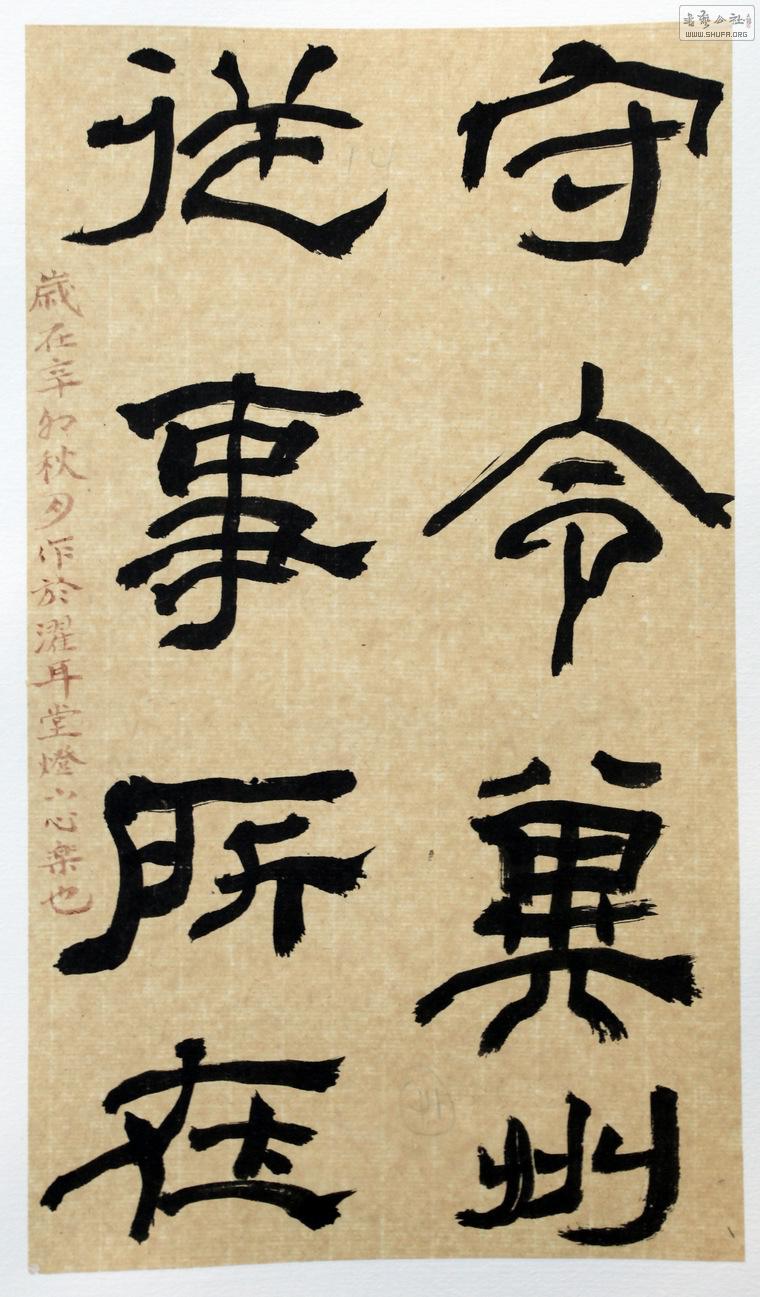 守令冀州
従事所在
歲在辛卯秋月作於濯耳堂燈下心樂也
書法公社
WWW.SHUFA.ORG
14